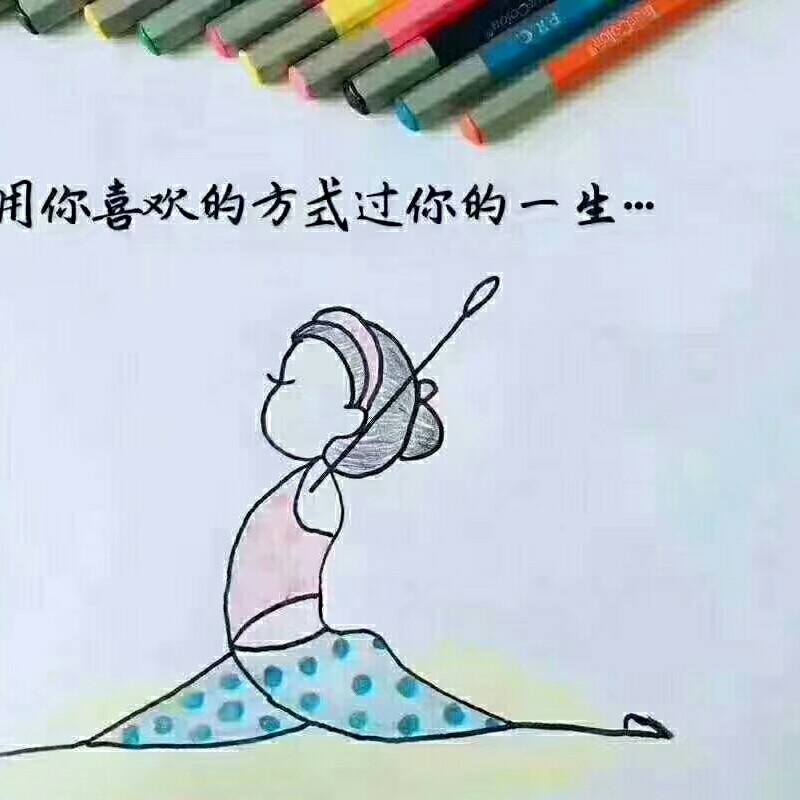 TrueColor
P.R.C.
TrueColor
用你喜欢的方式过你的一生…